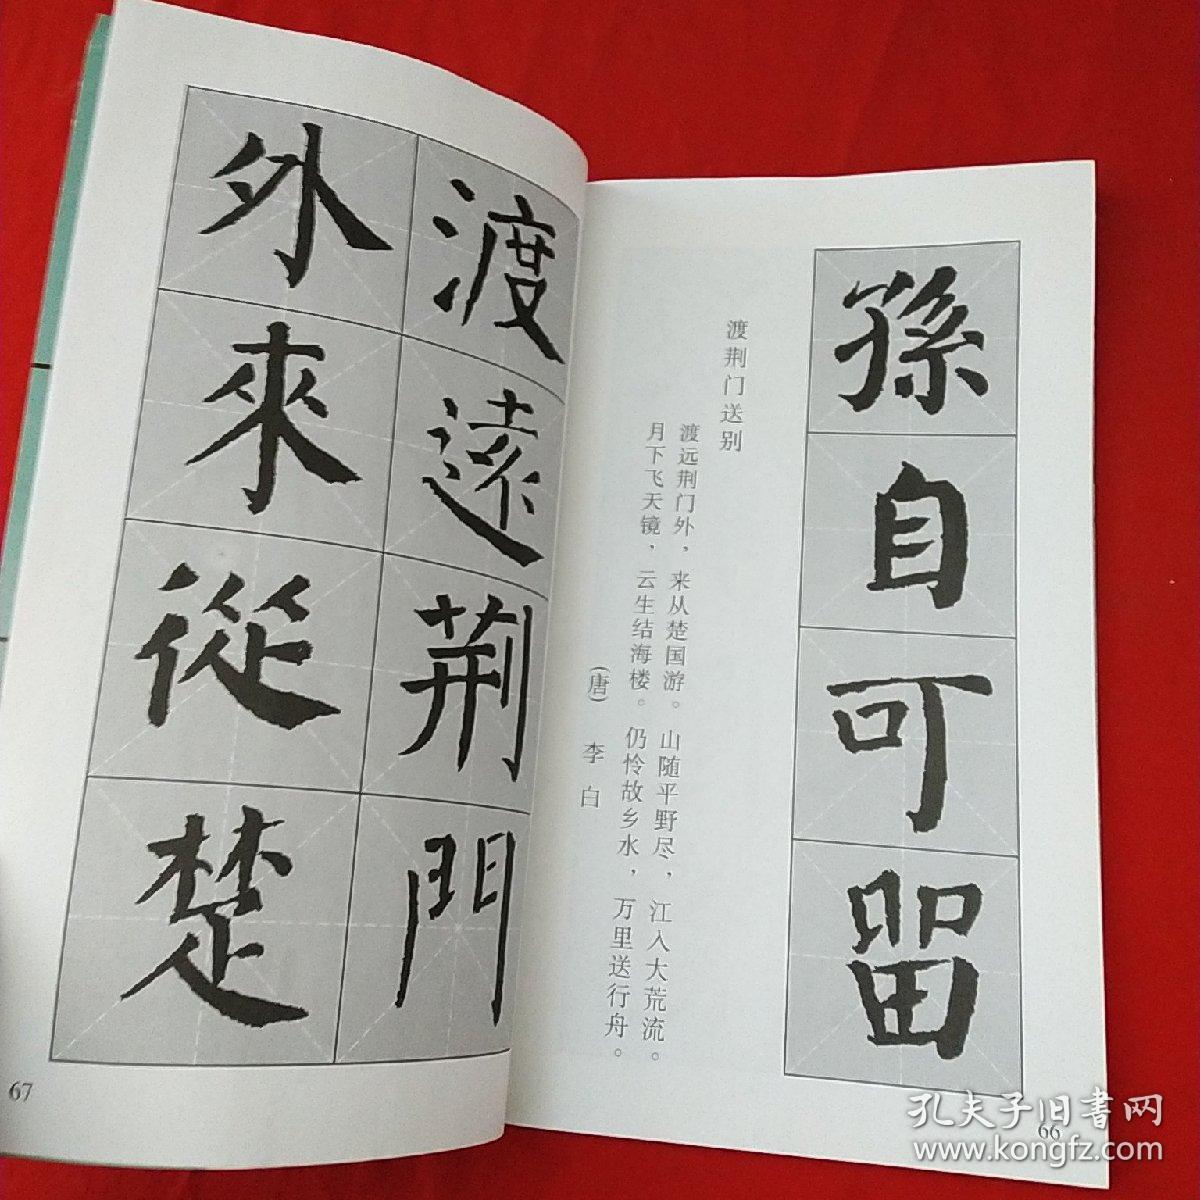 孫自可留
渡荆门送别
渡远荆门外，来从楚国游。山随平野尽，江入大荒流。
月下飞天镜，云生结海楼。仍怜故乡水，万里送行舟。
(唐) 李白
66
渡遠荆門
外來從楚
67
孔夫子旧书网
www.kongfz.com